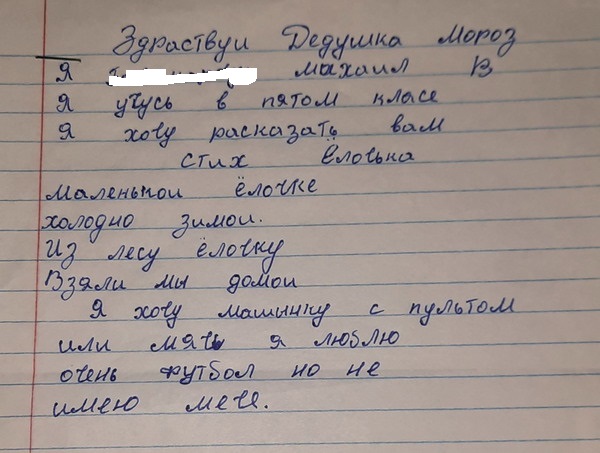 Здраствуи Дедушка мороз
Я михаил В
Я учусь в пятом класе
Я хочу расказать вам
стих Ёлочька
маленькои ёлочке
холодно зимои.
Из лесу ёлочку
Взяли мы домои
Я хочу машынку с пультом
или мячь я люблю
очень футбол но не
имею мече.